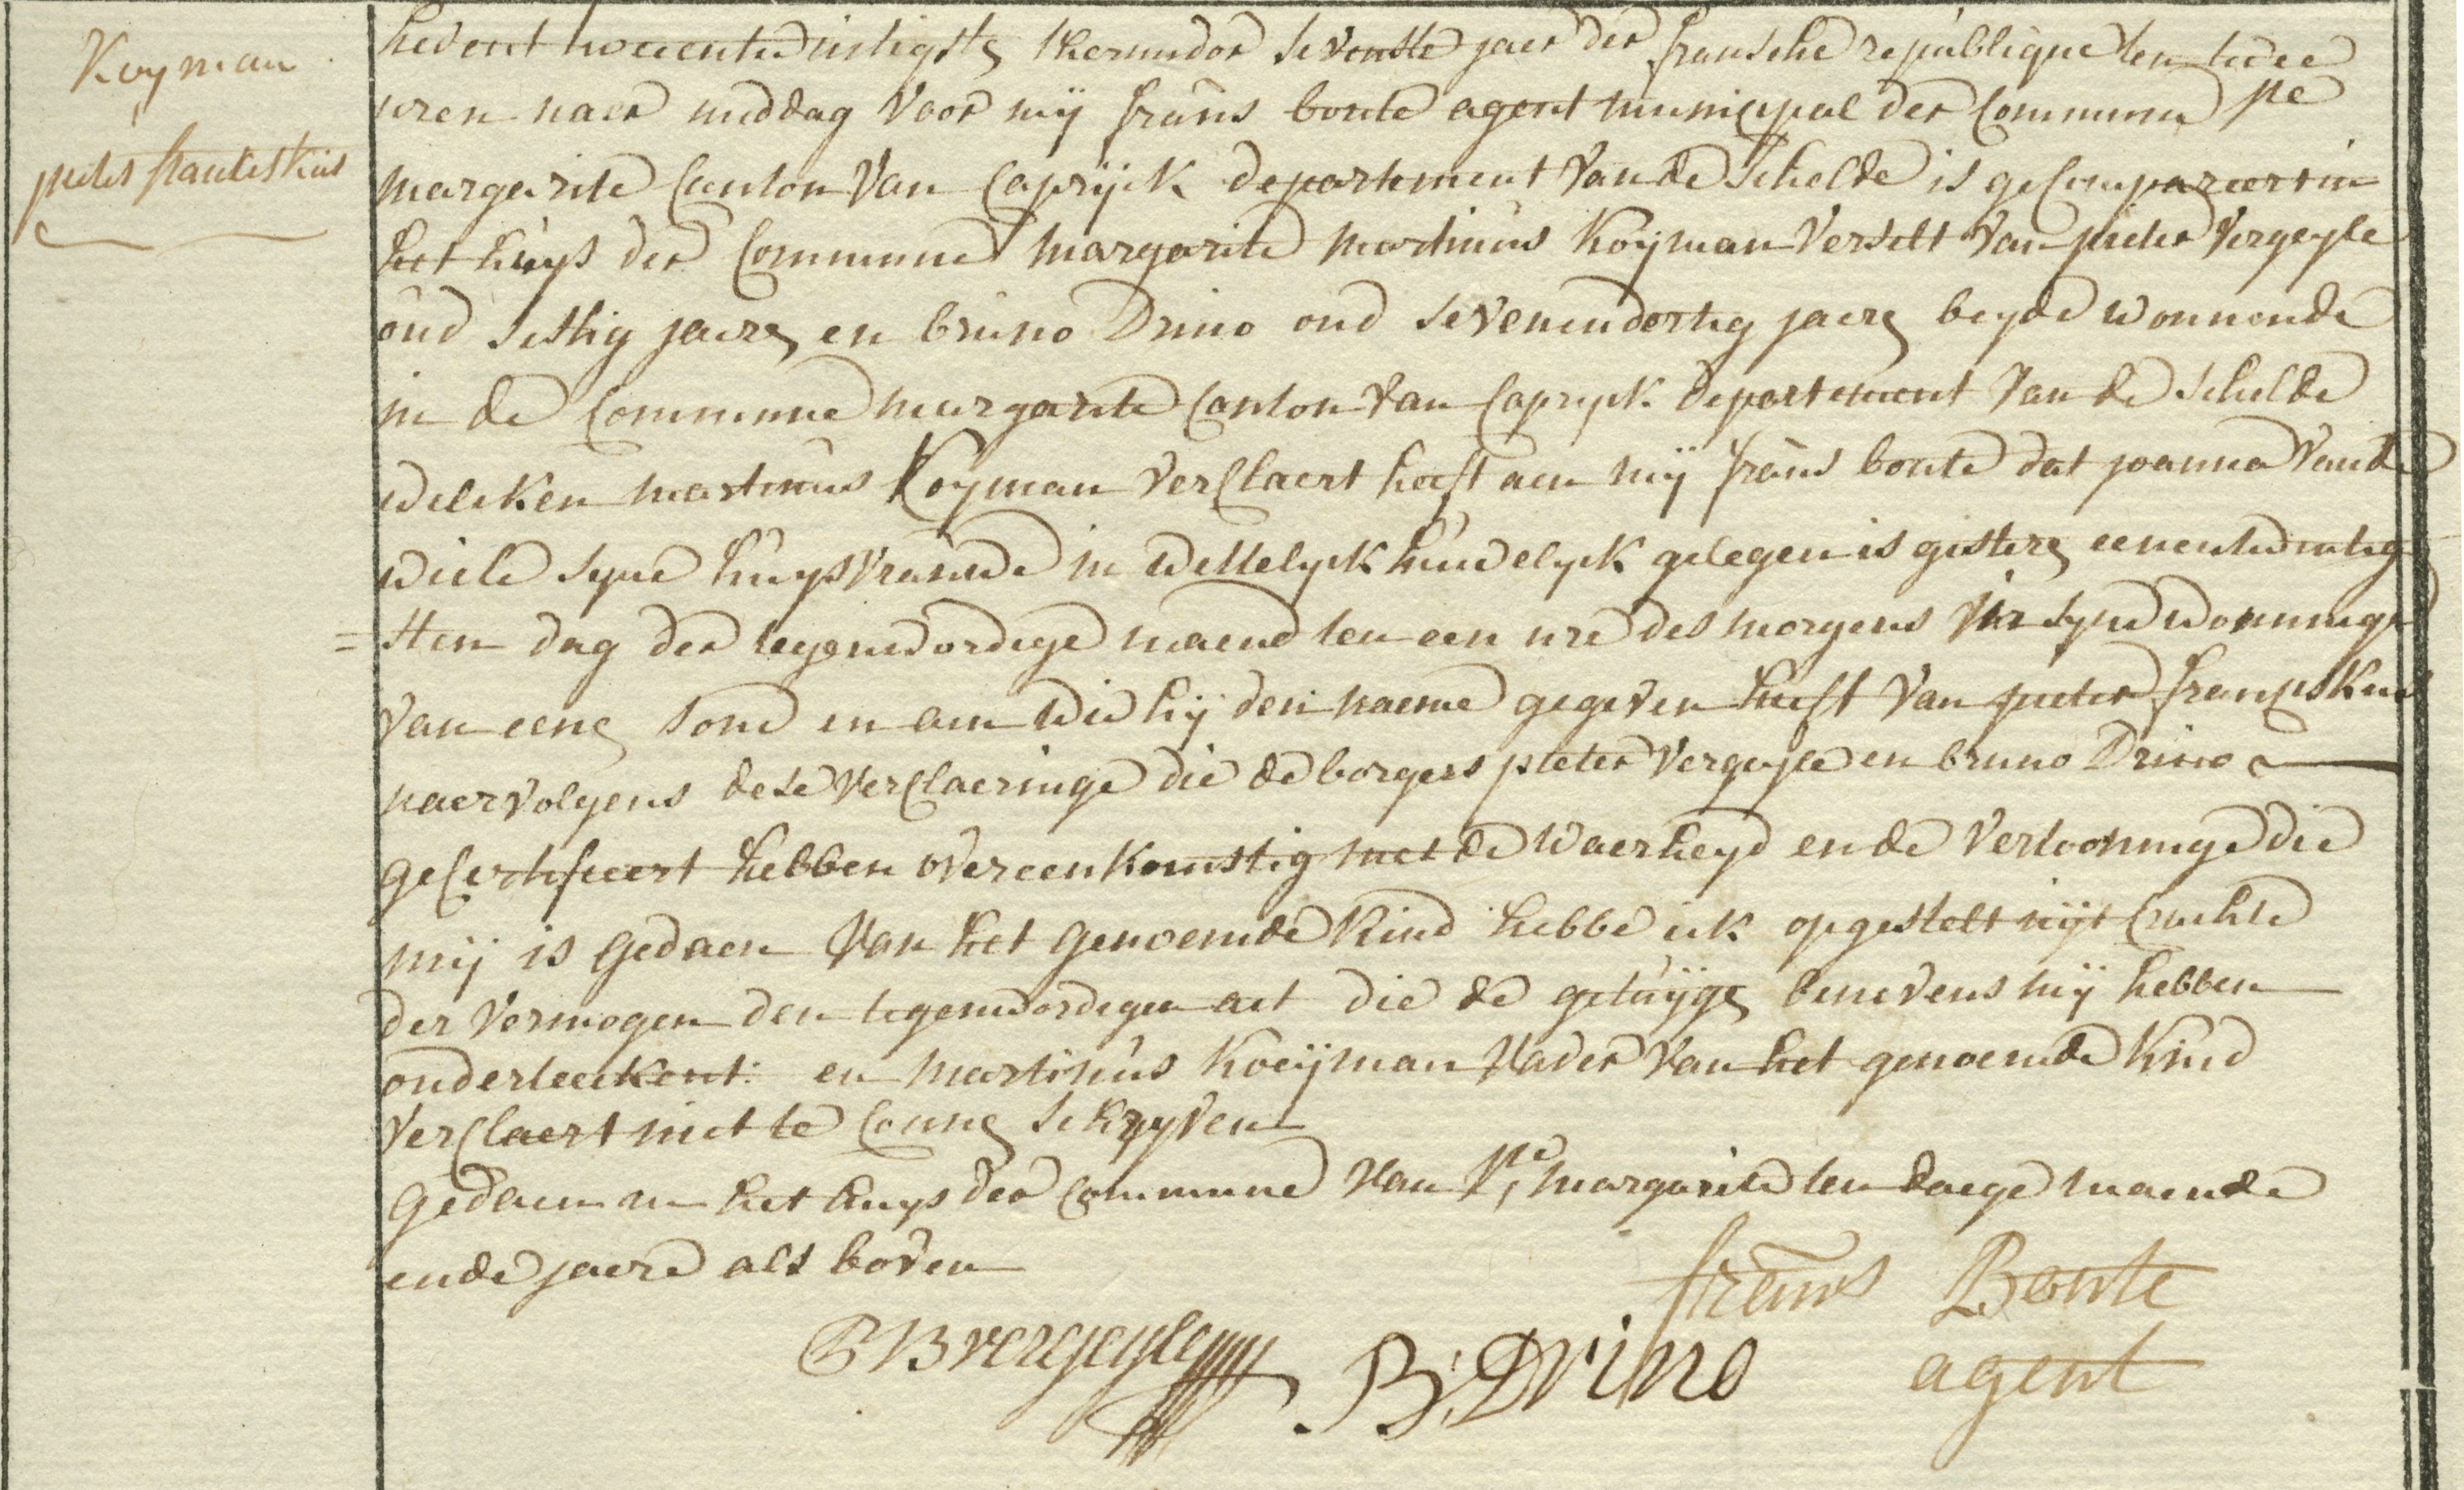 Koyman
pieter franciskus
hedent tweentwintigste thermidor sevenste jaer der fransche republique ten twee
uren naer middag voor mij frans bonte agent municipal der Commune ste
margarite Canton van Caprijck departement van de schelde is geCompareert in
het huys der Commune margarite martinus Koijman verselt van pieter vergeyle
oud sestig jaere en bruno Drino oud sevenendertig jaere beyde wonnende
in de Commune margarite Canton van Capryck departement van de schelde
welcken martinus Koyman verClaert heeft aen mij frans bonte dat joanna vande
wiele syne huysvrauwe in wettelyck huwelyck gelegen is gistere eenentwintig
=sten dag der tegenwordige maend ten een ure des morgens in syne wonninge
van eene sone en aen wie hij den naeme gegeven heeft van pieter franciskus
naervolgens dese verClaeringe die de borgers pieter vergeyle en bruno Drino
geCertifieert hebben overeenkomstig met de waerheyd en de vertooninge die
mij is gedaen van het genoemde kind hebbe ick opgestelt uijt Crachte
der vermogen den tegenwordigen act die de getuijge benevens mij hebben
onderteekent: en martinus Koeijman vader van het genoemde kind
verClaert niet te Conne schryven
gedaen in het huys der Commune van ste margarite ten daege maende
ende jaere als boven
frans Bonte
P B vergeyle B: Drino agent